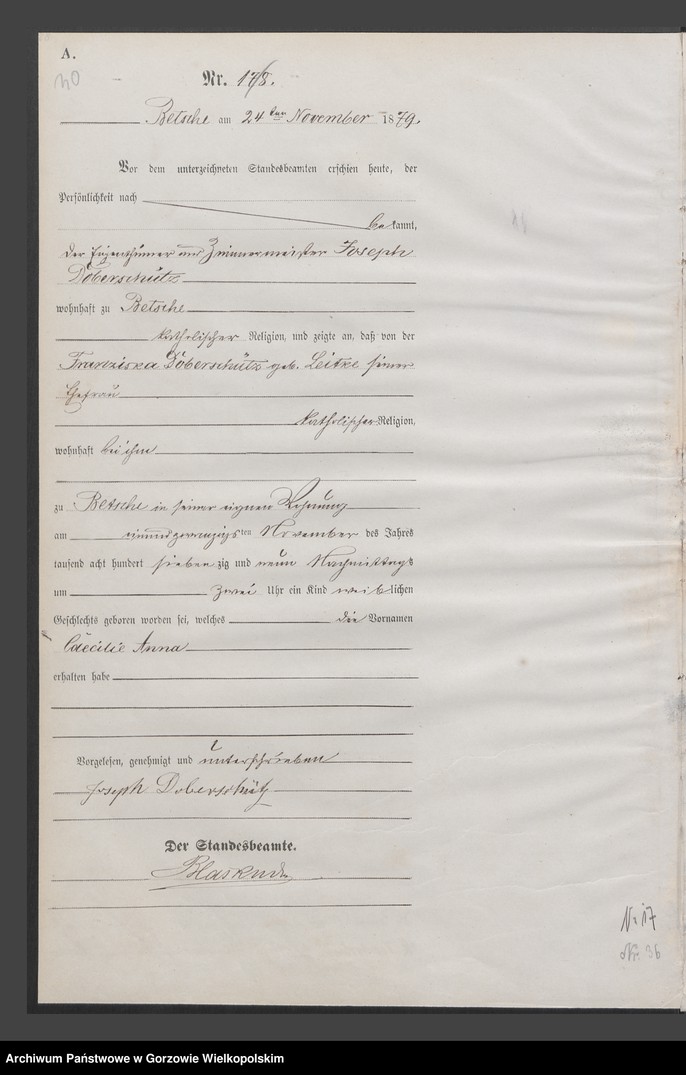 A.
40
Nr. 178.
Betsche am 24ten November 1879.
Vor dem unterzeichneten Standesbeamten erschien heute, der
Persönlichkeit nach
bekannt,
der Eigenthümer und Zimmermeister Joseph
Döberschütz
wohnhaft zu Betsche
katholischer Religion, und zeigte an, daß von der
Franziska Döberschütz geb. Leitke seiner
Ehefrau
katholischer Religion,
wohnhaft bei ihm
zu Betsche in seiner eignen Wohnung
am einundzwanzigsten November des Jahres
tausend acht hundert siebenzig und neun Nachmittags
um zwei Uhr ein Kind weiblichen
Geschlechts geboren worden sei, welches die Vornamen
Caecilie Anna
erhalten habe
Vorgelesen, genehmigt und unterschrieben
Joseph Doberschütz
Der Standesbeamte.
N: 17
Nr. 36
Archiwum Państwowe w Gorzowie Wielkopolskim